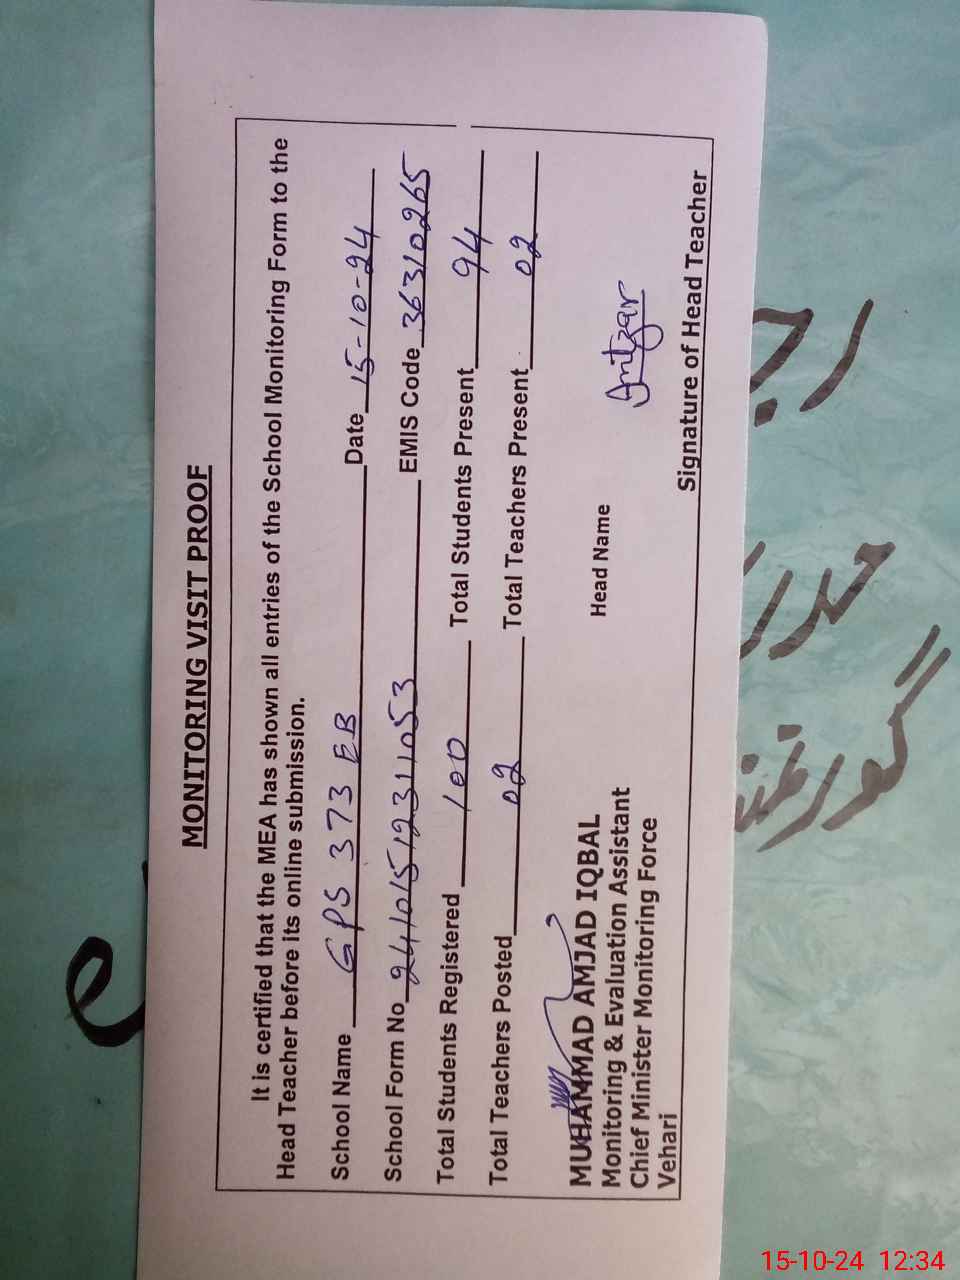 MONITORING VISIT PROOF
It is certified that the MEA has shown all entries of the School Monitoring Form to the
Head Teacher before its online submission.
School Name GPS 373 EB Date 15-10-24
School Form No 24101512311053 EMIS Code 36310265
Total Students Registered 100 Total Students Present 94
Total Teachers Posted 02 Total Teachers Present 02
MUHAMMAD AMJAD IQBAL
Monitoring & Evaluation Assistant
Chief Minister Monitoring Force
Vehari
Head Name
Signature of Head Teacher
15-10-24 12:34